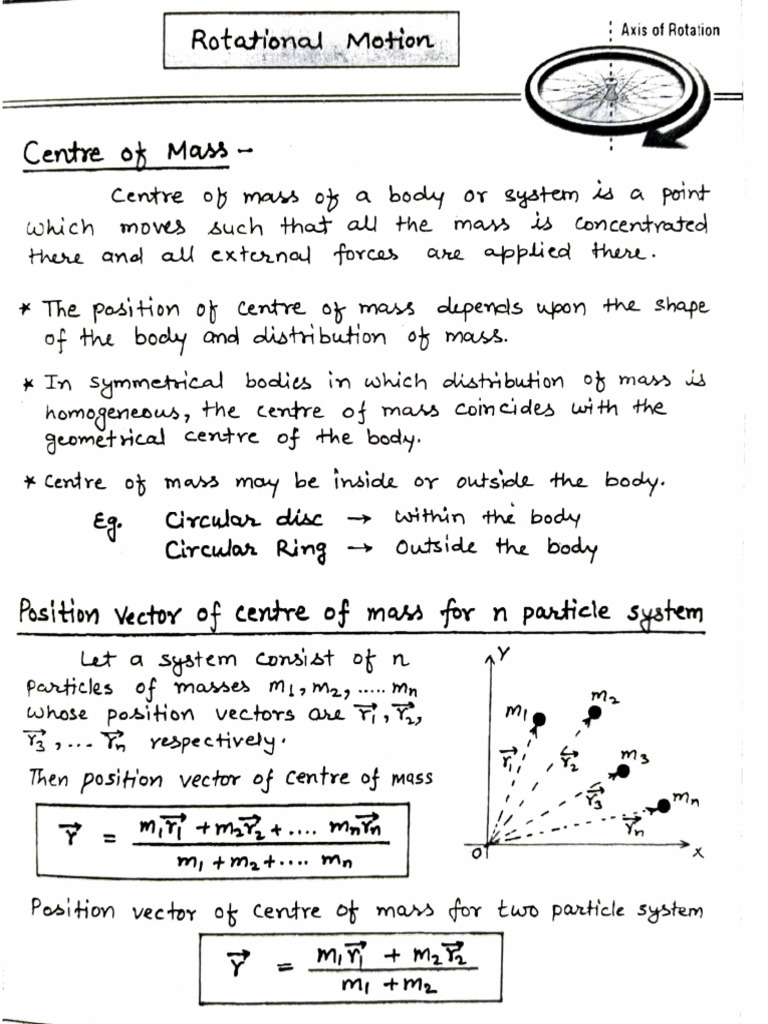 Rotational Motion
Axis of Rotation
Centre of Mass -
Centre of mass of a body or system is a point
which moves such that all the mass is concentrated
there and all external forces are applied there.
* The position of centre of mass depends upon the shape
of the body and distribution of mass.
* In symmetrical bodies in which distribution of mass is
homogeneous, the centre of mass coincides with the
geometrical centre of the body.
* Centre of mass may be inside or outside the body.
Eg. Circular disc → within the body
Circular Ring → Outside the body
Position vector of centre of mass for n particle system
Let a system consist of n
particles of masses m₁, m₂, ..... mₙ
whose position vectors are r⃗₁, r⃗₂,
r⃗₃, ... r⃗ₙ respectively.
Then position vector of centre of mass
r⃗ = (m₁r⃗₁ + m₂r⃗₂ + .... mₙr⃗ₙ) / (m₁ + m₂ + .... mₙ)
Y
m₁
m₂
m₃
mₙ
r⃗₁
r⃗₂
r⃗₃
r⃗ₙ
O
X
Position vector of centre of mass for two particle system
r⃗ = (m₁r⃗₁ + m₂r⃗₂) / (m₁ + m₂)